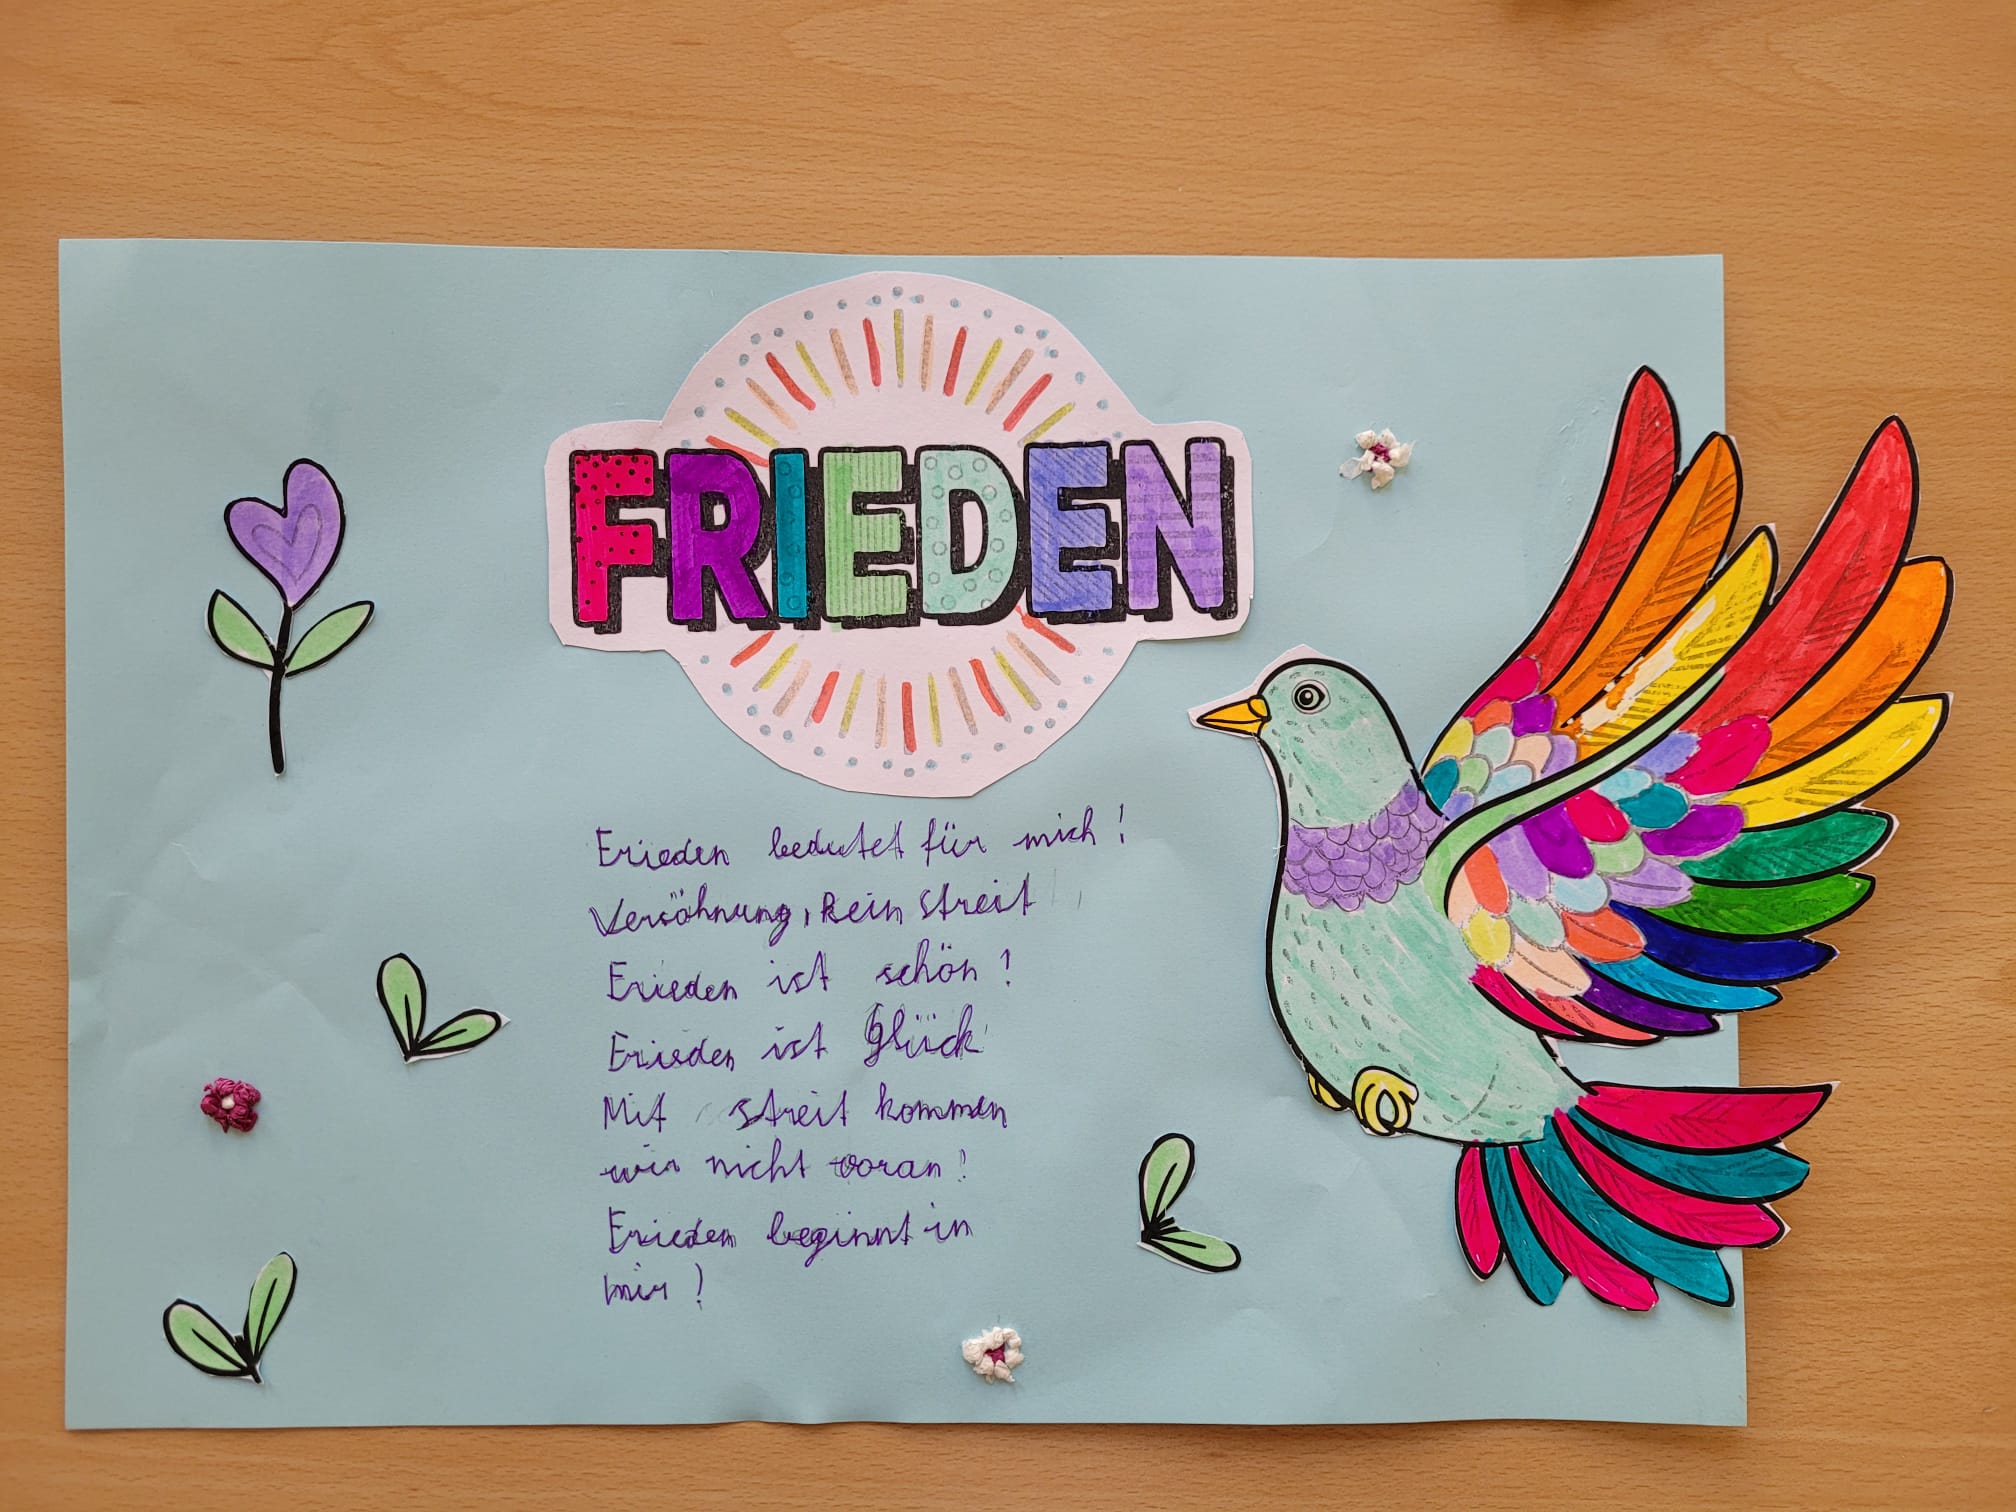 FRIEDEN
Frieden bedutet für mich!
Versöhnung, kein streit
Frieden ist schön!
Frieden ist Glück
Mit streit kommen
wir nicht voran!
Frieden beginnt in
mir!